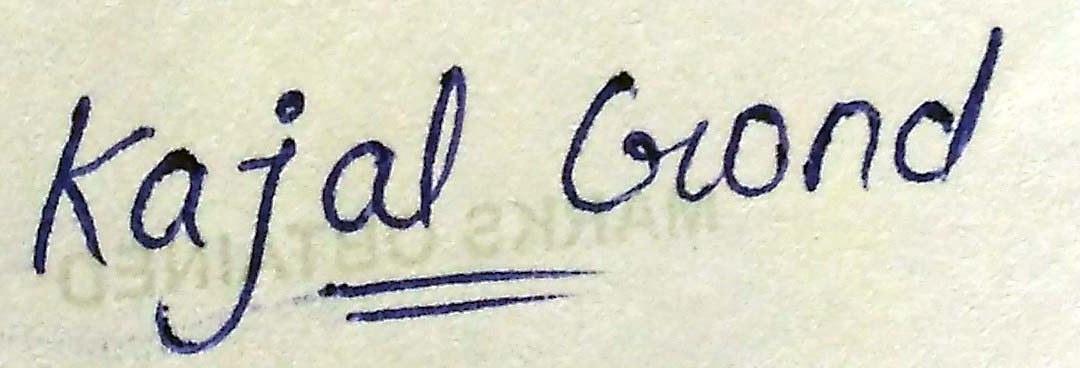 Kajal Gond
MARKS OBTAINED